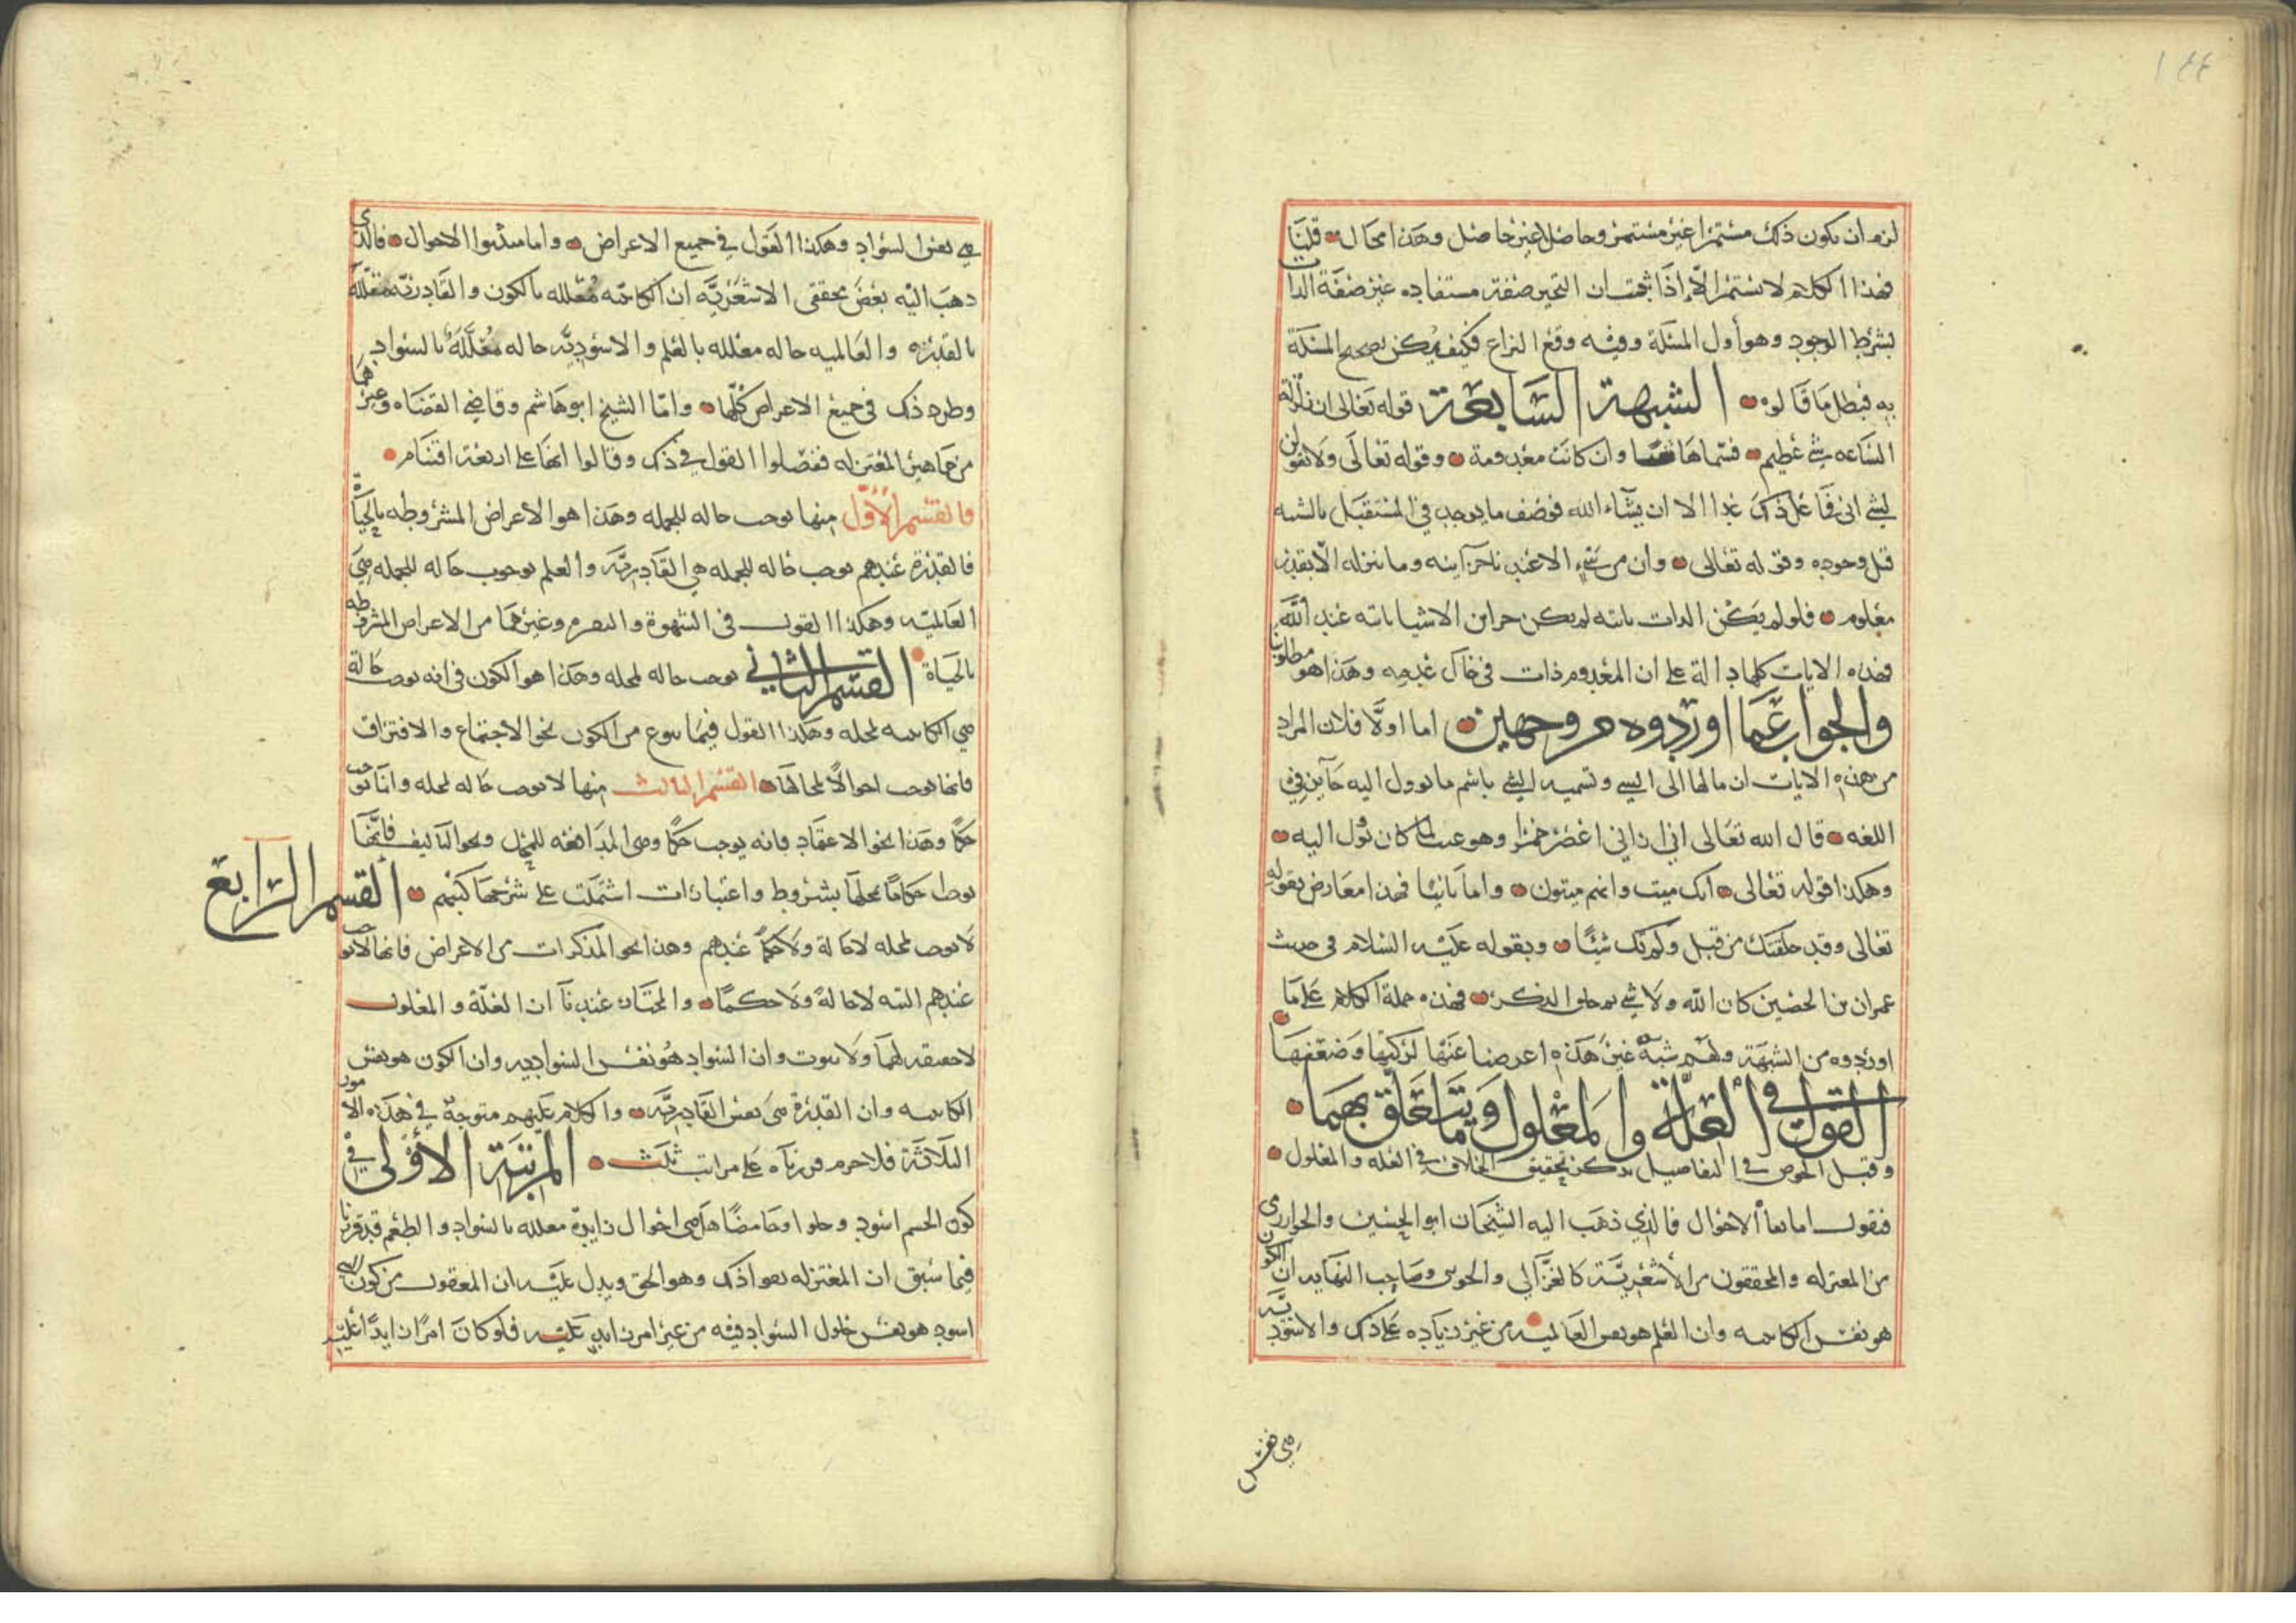 ١٤٤
لزم ان يكون ذلك مستمرا غير مستمر وحاصلا غير حاصل وهذا محال قلنا
فهذا الكلام لا يستمر الا اذا ثبت ان التحيز صفة مستفاده غير صفة الذات
بشرط الوجود وهو أول المسئلة وفيه وقع النزاع فكيف يمكن تصحيح المسئلة
به فبطل ما قالوه الشبهة السابعة قوله تعالى ان زلزلة
الساعه شئ عظيم فسماها شيئا وان كانت معدومة وقوله تعالى ولا تقولن
لشئ انى فاعل ذلك غدا الا ان يشاء الله فوصف ما يوجد في المستقبل بالشيئية
قبل وجوده وقوله تعالى وان من شئ الا عندنا خزآئنه وما ننزله الا بقدر
معلوم فلو لم يكن الذات ثابته لم يكن خزاين الاشيا ثابته عند الله
فهذه الايات كلها دالة على ان المعدوم ذات في حال عدمه وهذا هو مطلوبنا
والجواب عما اوردوه من وجهين اما اولا فلان المراد
من هذه الايات ان مالها الى الشئ وتسميه الشئ باسم ما يوول اليه جآيز في
اللغه قال الله تعالى اني اراني اعصر خمرا وهو عنب لما كان يؤل اليه
وهكذا قوله تعالى انك ميت وانهم ميتون واما ثانيا فهذا معارض بقوله
تعالى وقد خلقتك من قبل ولم تك شيئا وبقوله عليه السلام في حديث
عمران بن الحصين كان الله ولا شئ ثم خلق الذكر فهذه جملة الكلام على ما
اوردوه من الشبهة ولهم شبه غير هذه اعرضنا عنها لركتها وضعفها
القول في العلة والمعلول وما يتعلق بهما
وقبل الخوض في التفاصيل نذكر تحقيق الخلاف في العله والمعلول
فنقول اما نفاة الاحوال فالذي ذهب اليه الشيخان ابو الحسين والخوارزمي
من المعتزله والمحققون من الأشعرية كالغزالي والجويني وصاحب النهايه ان الكون
هو نفس الكائنيه وان العلم هو نفس العالميه من غير زياده على ذلك والاسودية
هي نفس
هي نفس السواد وهكذا القول في جميع الاعراض واما مثبتوا الاحوال فالذي
ذهب اليه بعض محققى الاشعرية ان الكائنيه معلله بالكون والقادريه معللة
بالقدره والعالميه حاله معلله بالعلم والاسوديه حاله معللة بالسواد
وطرد ذلك فى جميع الاعراض كلها واما الشيخ ابو هاشم وقاضي القضاه وغيرهما
من جماهير المعتزله ففصلوا القول في ذلك وقالوا انها على اربعة اقسام
فالقسم الأول منها يوجب حاله للجمله وهذا هو الاعراض المشروطه بالحياة
فالقدرة عندهم يوجب حاله للجمله هي القادرية والعلم يوجب حاله للجمله هي
العالميه وهكذا القول فى الشهوة والنفره وغيرهما من الاعراض المشروطه
بالحياة القسم الثاني يوجب حاله لمحله وهذا هو الكون فى انه يوجب حالة
هي الكائنيه لمحله وهكذا القول فيما يتنوع من الكون نحو الاجتماع والافتراق
فانها توجب احوالا لمحالها القسم الثالث منها لا يوجب حاله لمحله وانما يوجب
حكما وهذا نحو الاعتماد فانه يوجب حكما وهى المدافعه للمحل ونحو التاليف فانها
توجب احكاما لمحلها بشروط واعتبارات اشتملت على شرحها كتبهم القسم الرابع
لا يوجب لمحله لا حالة ولا حكما عندهم وهذا نحو المدركات من الاعراض فانها لا توجب
عندهم البته لا حالة ولا حكما والمختار عندنآ ان العلة والمعلول
لا حقيقه لهما ولا ثبوت وان السواد هو نفس السواديه وان الكون هو نفس
الكائنيه وان القدرة هي نفس القادرية والكلام عليهم متوجه في هذه الامور
الثلاثة فلا جرم قررناه على مراتب ثلث المرتبة الاولى في
كون الجسم اسود وحلوا وحامضا هل هي احوال زايدة معلله بالسواد والطعم قد قررنا
فيما سبق ان المعتزله نفوا ذلك وهو الحق ويدل عليه ان المعقول من كون الشئ
اسود هو نفس حلول السواد فيه من غير امر زايد عليه فلو كان امرا زايدا عليه